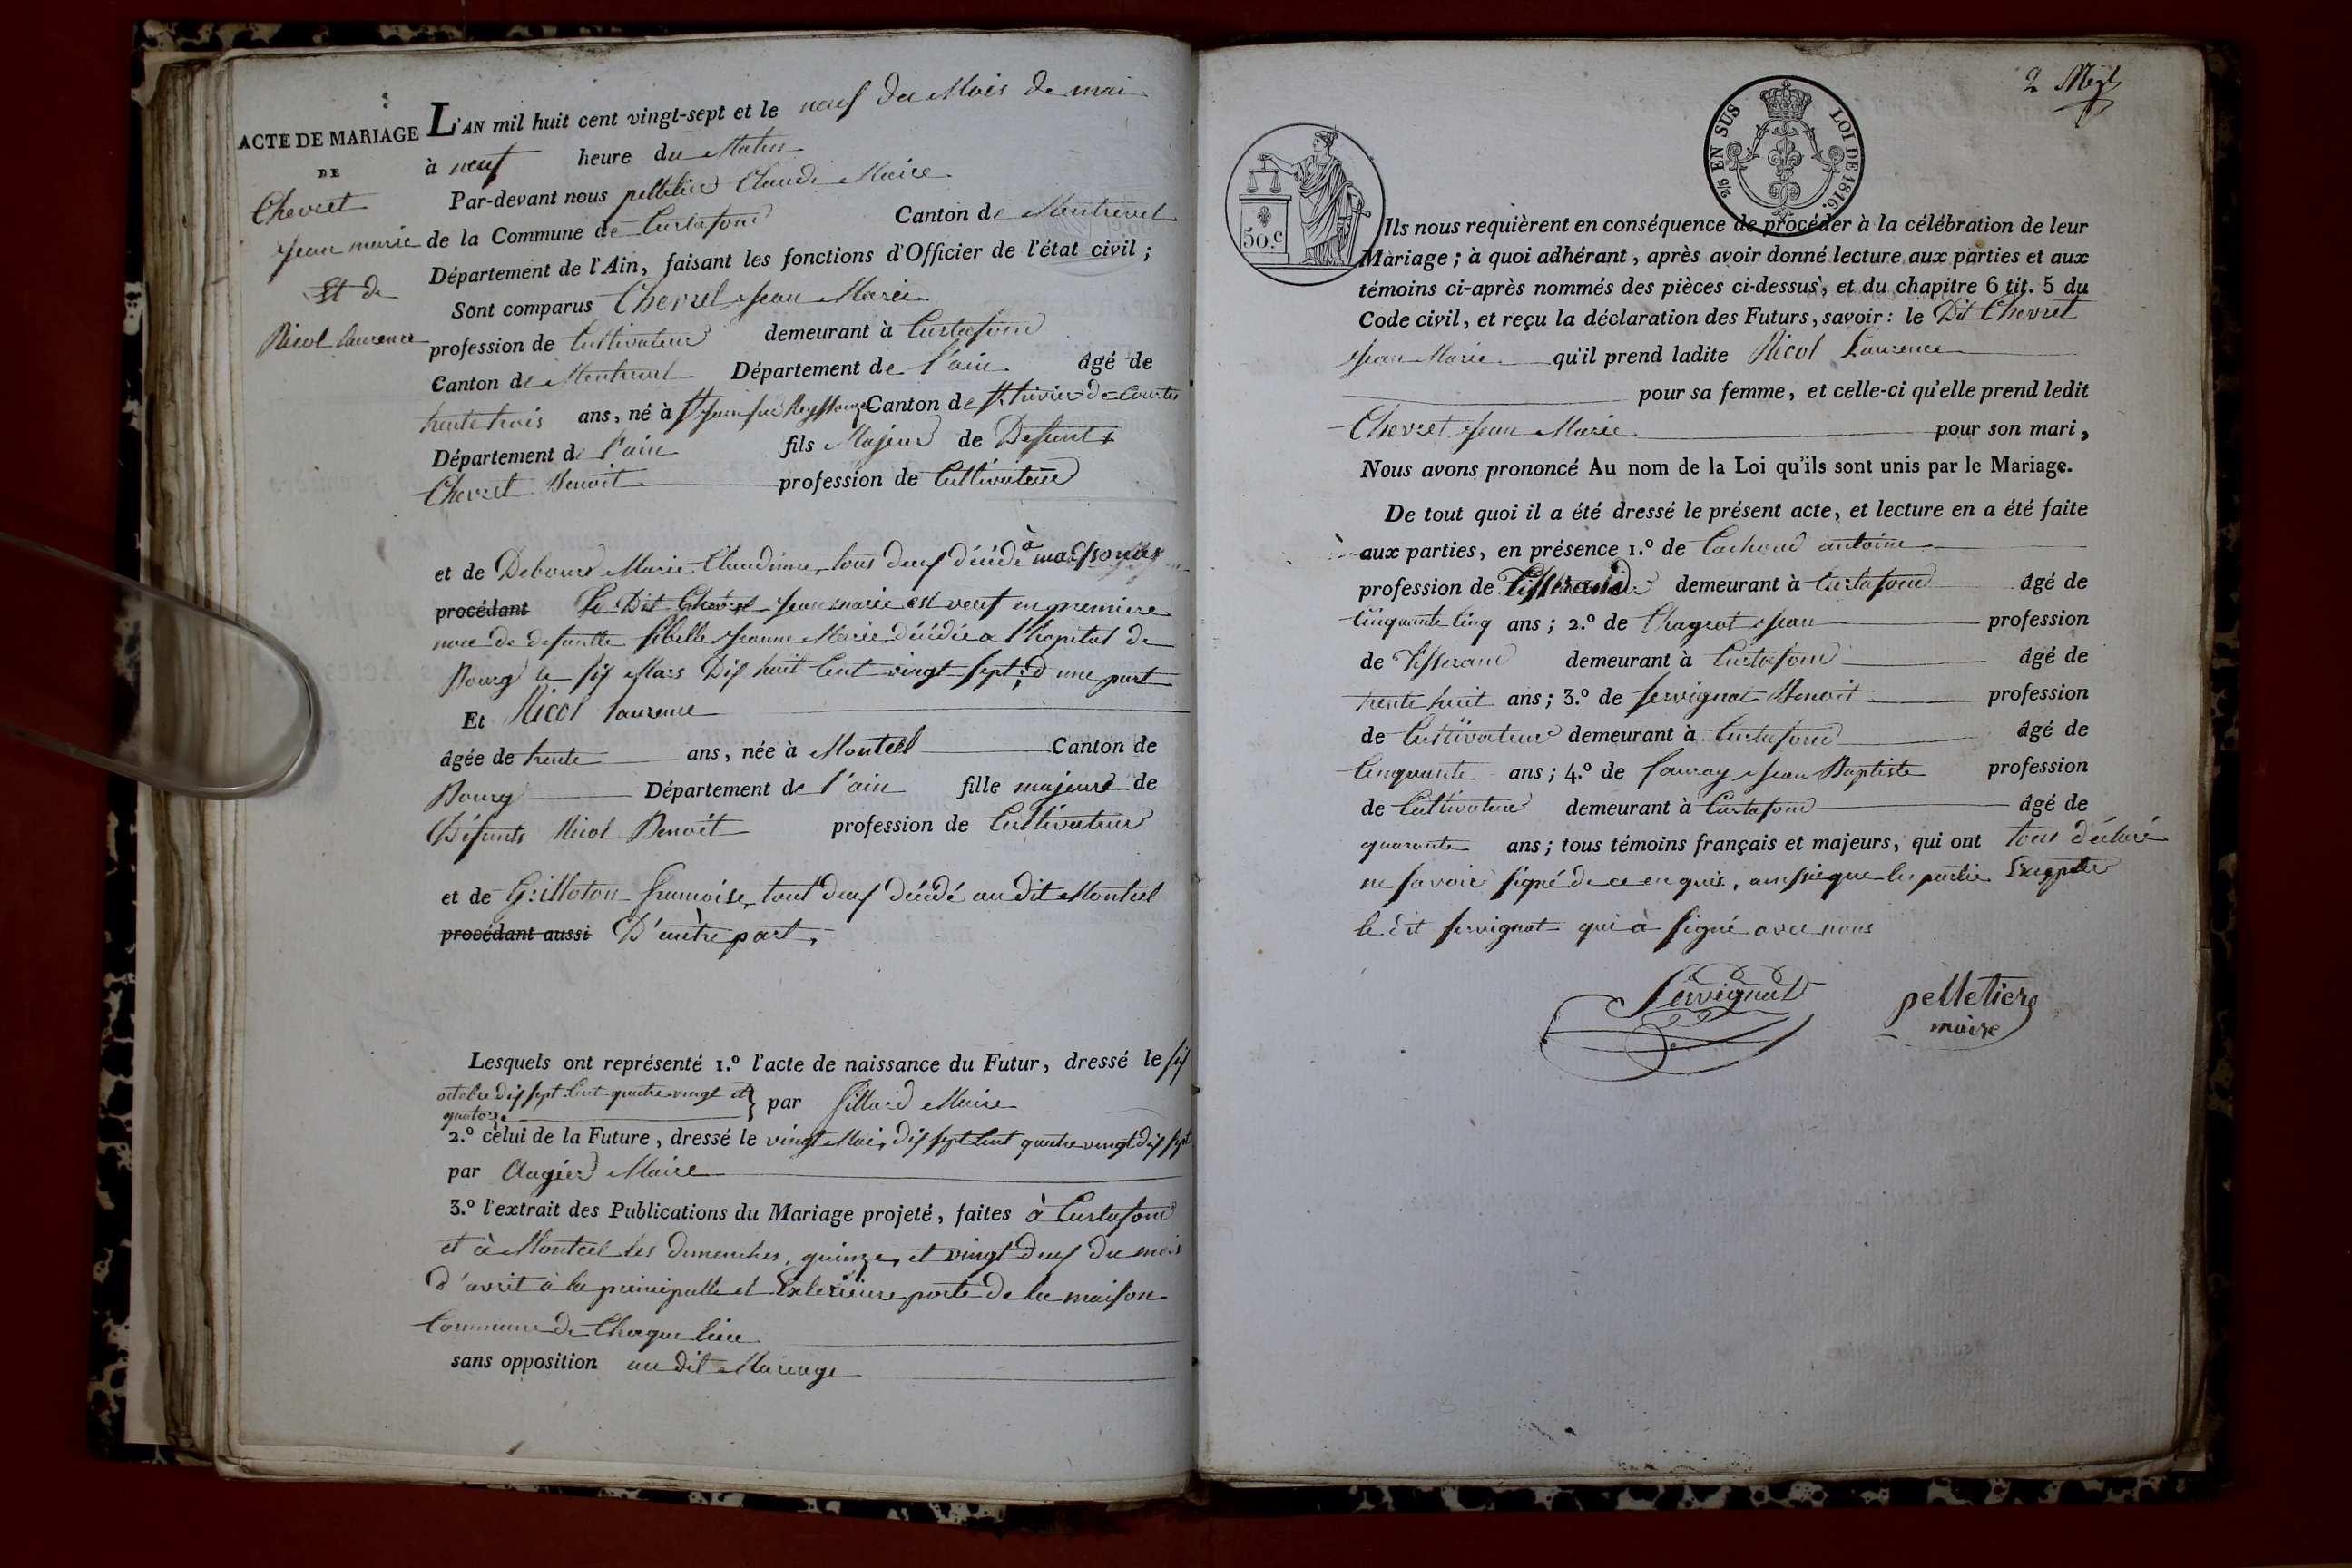 ACTE DE MARIAGE
DE
Chevret
Jean marie
Et de
Nicol laurence
L'AN mil huit cent vingt-sept et le neuf du Mois de mai
à neuf heure du Matin
Par-devant nous pelletier Claude Maire
de la Commune de Curtafond Canton de Montrevel
Département de l'Ain, faisant les fonctions d'Officier de l'état civil ;
Sont comparus Chevret Jean Marie
profession de Cultivateur demeurant à Curtafond
Canton de Montrevel Département de l'ain âgé de
trente trois ans, né à St Jean sur Reyssouze Canton de St trivier de Courtes
Département de l'ain fils Majeur de Defunts
Chevret Benoit profession de Cultivateur
et de Debourd Marie Claudinne, tous deux décédé à
procédant Le Dit Chevret Jean marie est veuf en premiere
noce de defuntte Sibelle Jeanne Marie décédée a l'hopital de
Bourg le six Mars Dix huit Cent vingt sept ; d'une part
Et Nicol laurence
âgée de trente ans, née à Montcel Canton de
Bourg Département de l'ain fille majeure de
Défunts Nicol Benoit profession de Cultivateur
et de Grilloton francoise, tout deux décédé au dit Montcel
procédant aussi D'autre part,
Lesquels ont représenté 1.º l'acte de naissance du Futur, dressé le six
octobre dix sept Cent quatre vingt et
quatorze par Sillard Maire
2.º celui de la Future, dressé le vingt Mai, dix sept Cent quatre vingt dix sept
par Augier Maire
3.º l'extrait des Publications du Mariage projeté, faites à Curtafond
et à Montcel les dimenches, quinze, et vingt deux du mois
d'avril à la principalle et Exterieure porte de la maison
Commune de Chaque lieu
sans opposition au dit Mariage
2 Megt
2/5 EN SUS LOI DE 1816.
50.c
Ils nous requièrent en conséquence de procéder à la célébration de leur
Mariage ; à quoi adhérant, après avoir donné lecture aux parties et aux
témoins ci-après nommés des pièces ci-dessus, et du chapitre 6 tit. 5 du
Code civil, et reçu la déclaration des Futurs, savoir : le Dit Chevret
Jean Marie qu'il prend ladite Nicol Laurence
pour sa femme, et celle-ci qu'elle prend ledit
Chevret Jean Marie pour son mari,
Nous avons prononcé Au nom de la Loi qu'ils sont unis par le Mariage.
De tout quoi il a été dressé le présent acte, et lecture en a été faite
aux parties, en présence 1.º de Cachoud antoine
profession de Tisserand demeurant à Curtafond âgé de
Cinquante Cinq ans ; 2.º de Chagrot Jean profession
de Tisserand demeurant à Curtafond âgé de
trente huit ans ; 3.º de Servignat Benoit profession
de Cultivateur demeurant à Curtafond âgé de
Cinquante ans ; 4.º de Jean Baptiste profession
de Cultivateur demeurant à Curtafond âgé de
quarante ans ; tous témoins français et majeurs, qui ont tous déclaré
ne savoir signé de ce enquis, aussi que les partie Excepter
le dit Servignat qui à signé avec nous
Servignat
pelletier
maire